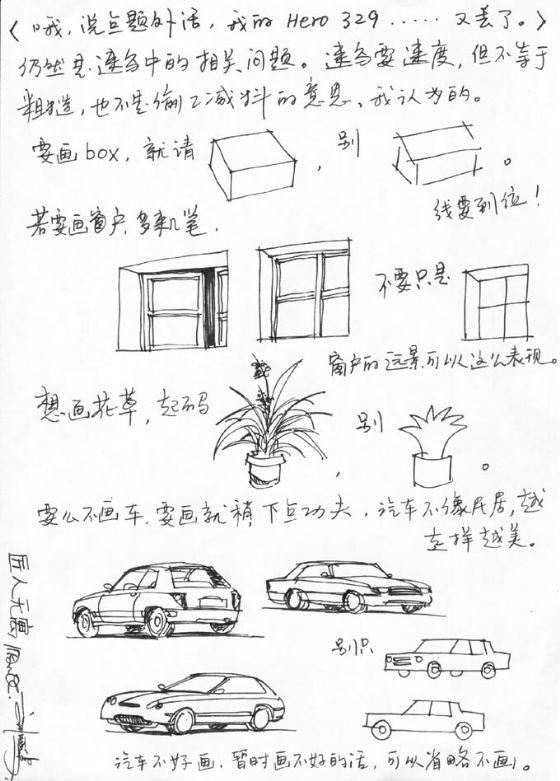 〈哦，说点题外话，我的 Hero 329 …… 又丢了。〉
仍然是速写中的相关问题。速写要速度，但不等于
粗糙，也不是偷工减料的意思、我认为的。
要画 box，就请 ，别 。
线要到位！
若要画窗户，多来几笔．
不要只是
窗户的远景可以这么表现。
想画花草，起码 ，别 。
要么不画车．要画就稍下点功夫，汽车不像民居，越
走样越美。
别只
汽车不好画．暂时画不好的话，可以省略不画。
匠人无寓